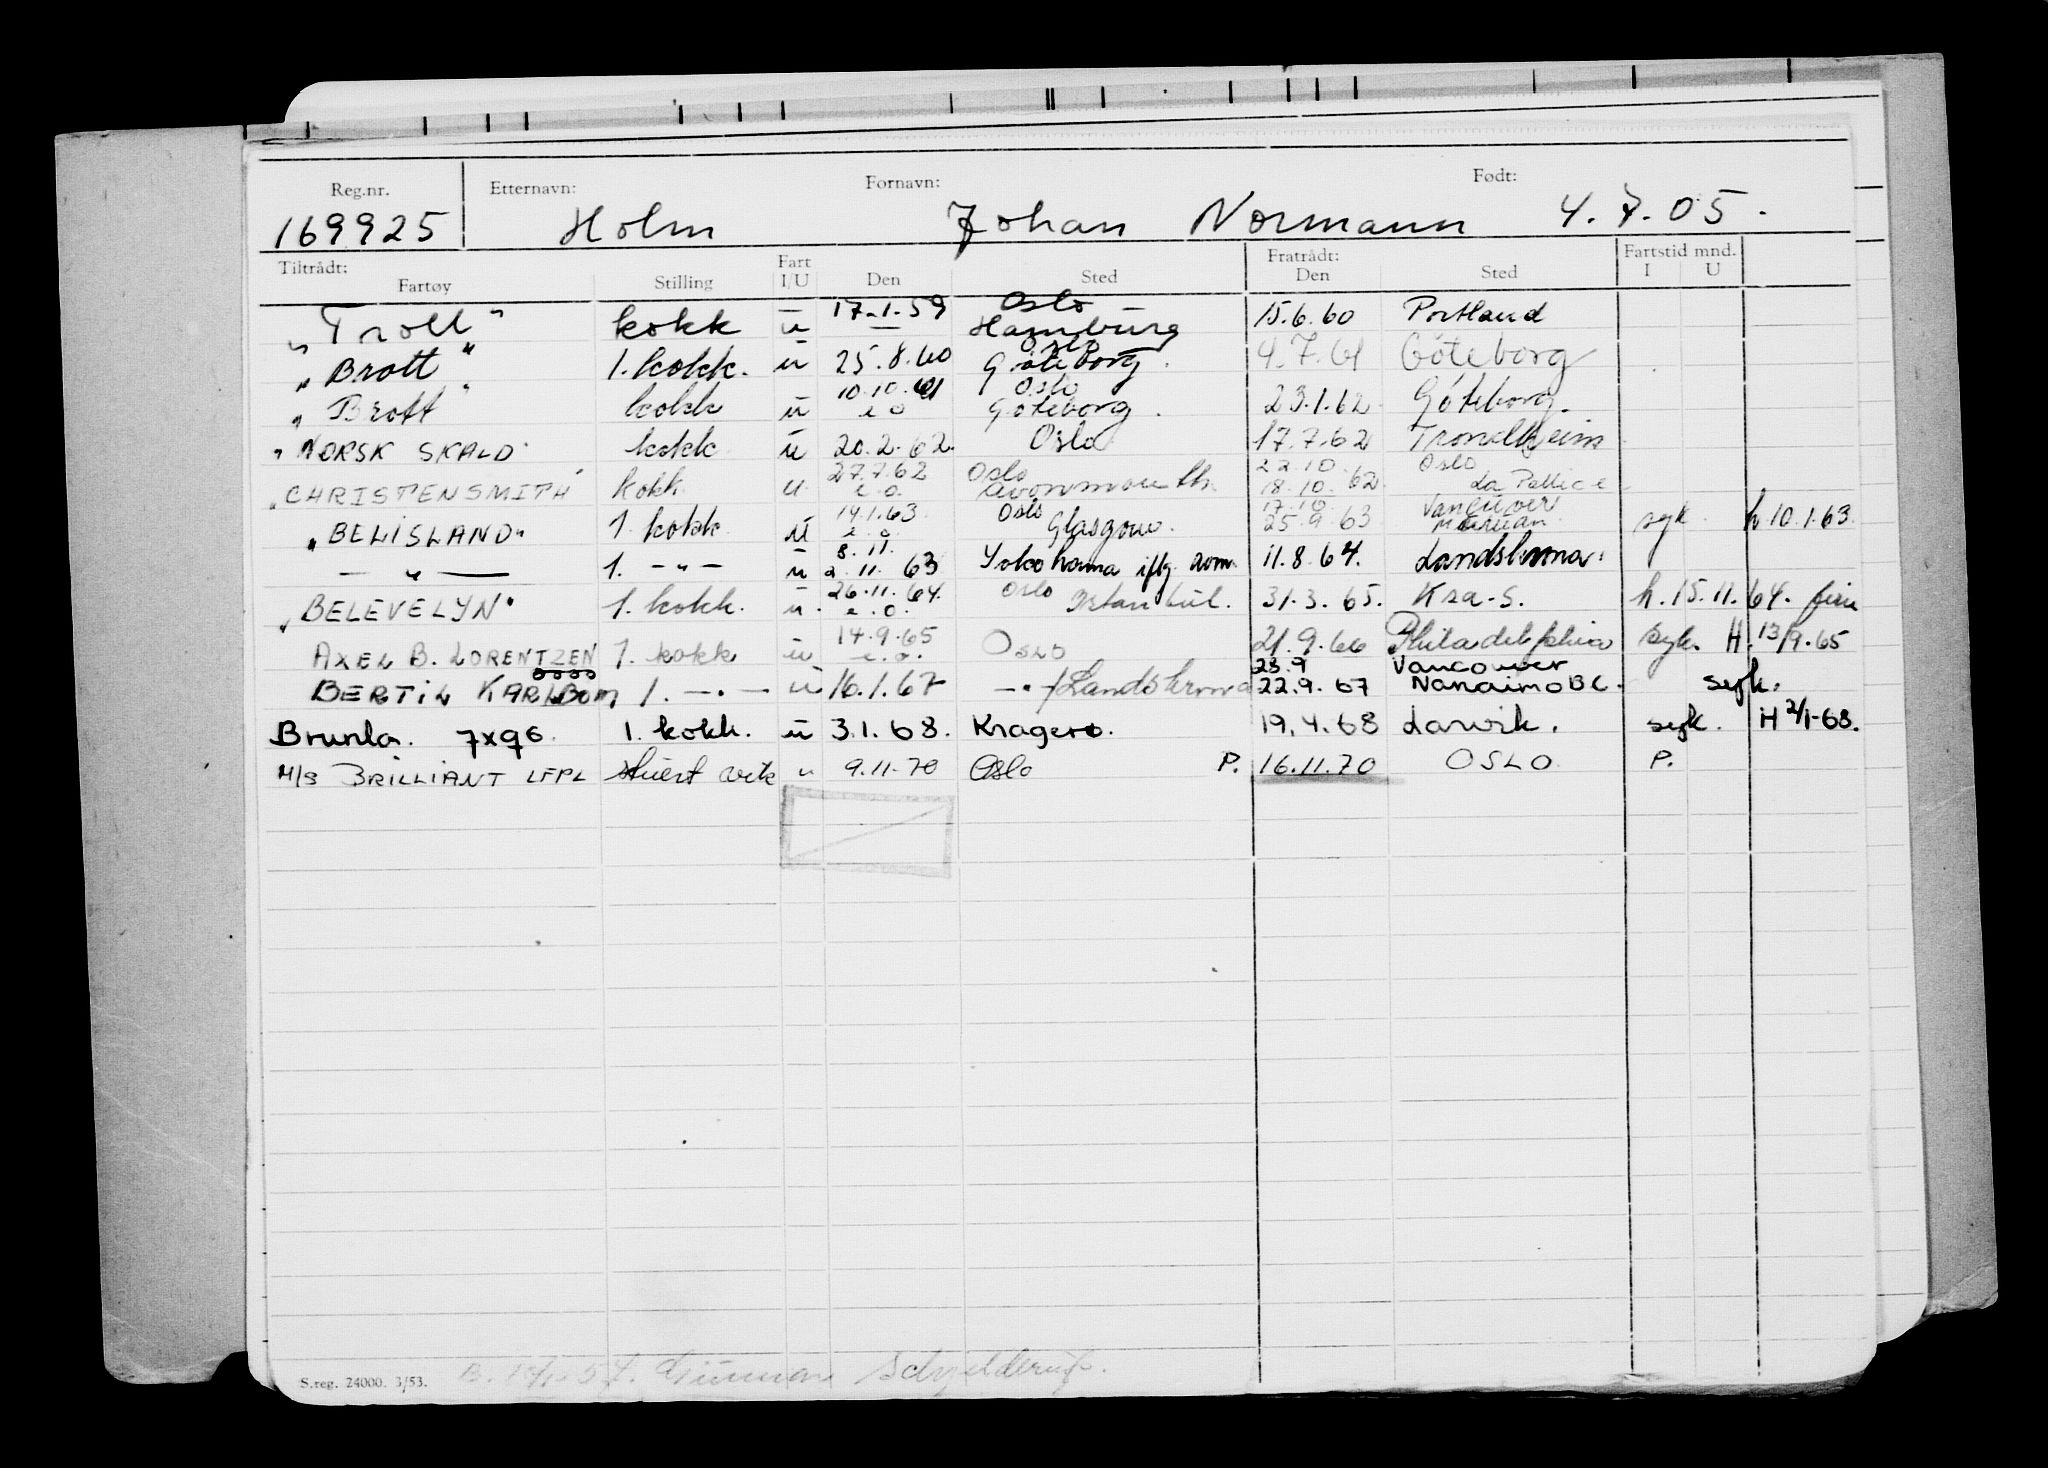 Reg.nr. Etternavn: Fornavn: Født:
169925 Holm Johan Normann 4.7.05.
Tiltrådt: Fart Fratrådt: Fartstid mnd.
Fartøy Stilling I/U Den Sted Den Sted I U
Oslo
"Troll" kokk u 17.1.59 Hamburg 15.6.60 Portland
Oslo
"Brott" 1. kokk. u 25.8.60 Göteborg. 4.7.61 Göteborg
10.10.61 Oslo
"Brott" kokk u e o Göteborg. 23.1.62 Göteborg.
"NORSK SKALD" kokk u 20.2.62. Oslo 17.7.62 Trondheim
27.7.62 Oslo 22.10. Oslo
"CHRISTENSMITH" kokk u. e.o. Avonmouth. 18.10.62. La Pallice
14.1.63. Oslo 17.10. Vancuver
"BELISLAND" 1. kokk u e.o. Glasgow. 25.9.63 syk h 10.1.63.
8.11.
— " — 1. - " - u 2.11.63 Yokohama iflg. 11.8.64. Landskrona.
26.11.64. Oslo
"BELEVELYN" 1. kokk. u. e.o. Istanbul. 31.3.65. Kra-S. h.15.11.64.
14.9.65
AXEL B. LORENTZEN 1. kokk u e.o. OSLO 21.9.66 Philadelphia syk. H. 13/9.65
23.9 Vancouver
BERTIL KARLBOM 1. — " — u 16.1.67 — " — / Landskrona 22.9.67 Nanaimo BC. syk.
Brunla. 7x96 1. kokk. u 3.1.68. Kragerø. 19.4.68 Larvik. syk. H 2/1-68.
M/S BRILLIANT LFPL stuert vik u 9.11.70 Oslo P. 16.11.70 OSLO P.
S.reg. 24000. 3/53. Gunnar Schjelderup.